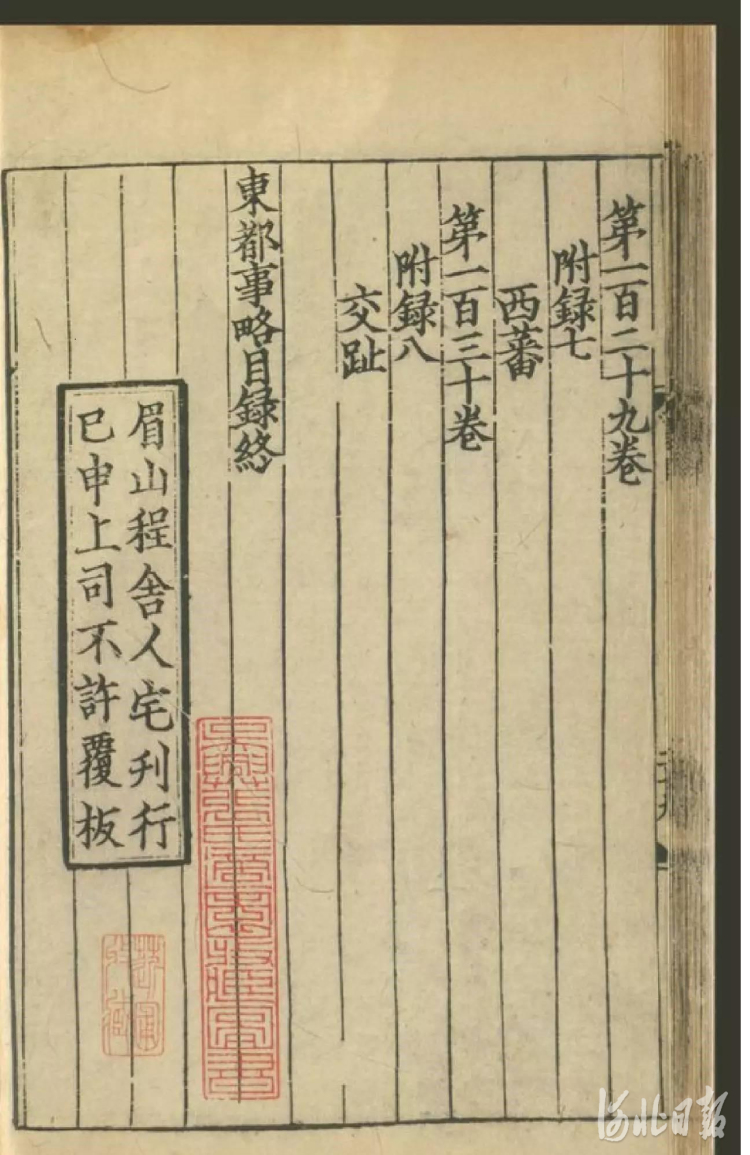 第一百二十九卷
附録七
西蕃
第一百三十卷
附録八
交趾
東都事略目録終
眉山程舍人宅刋行
已申上司不許覆板
河北日報